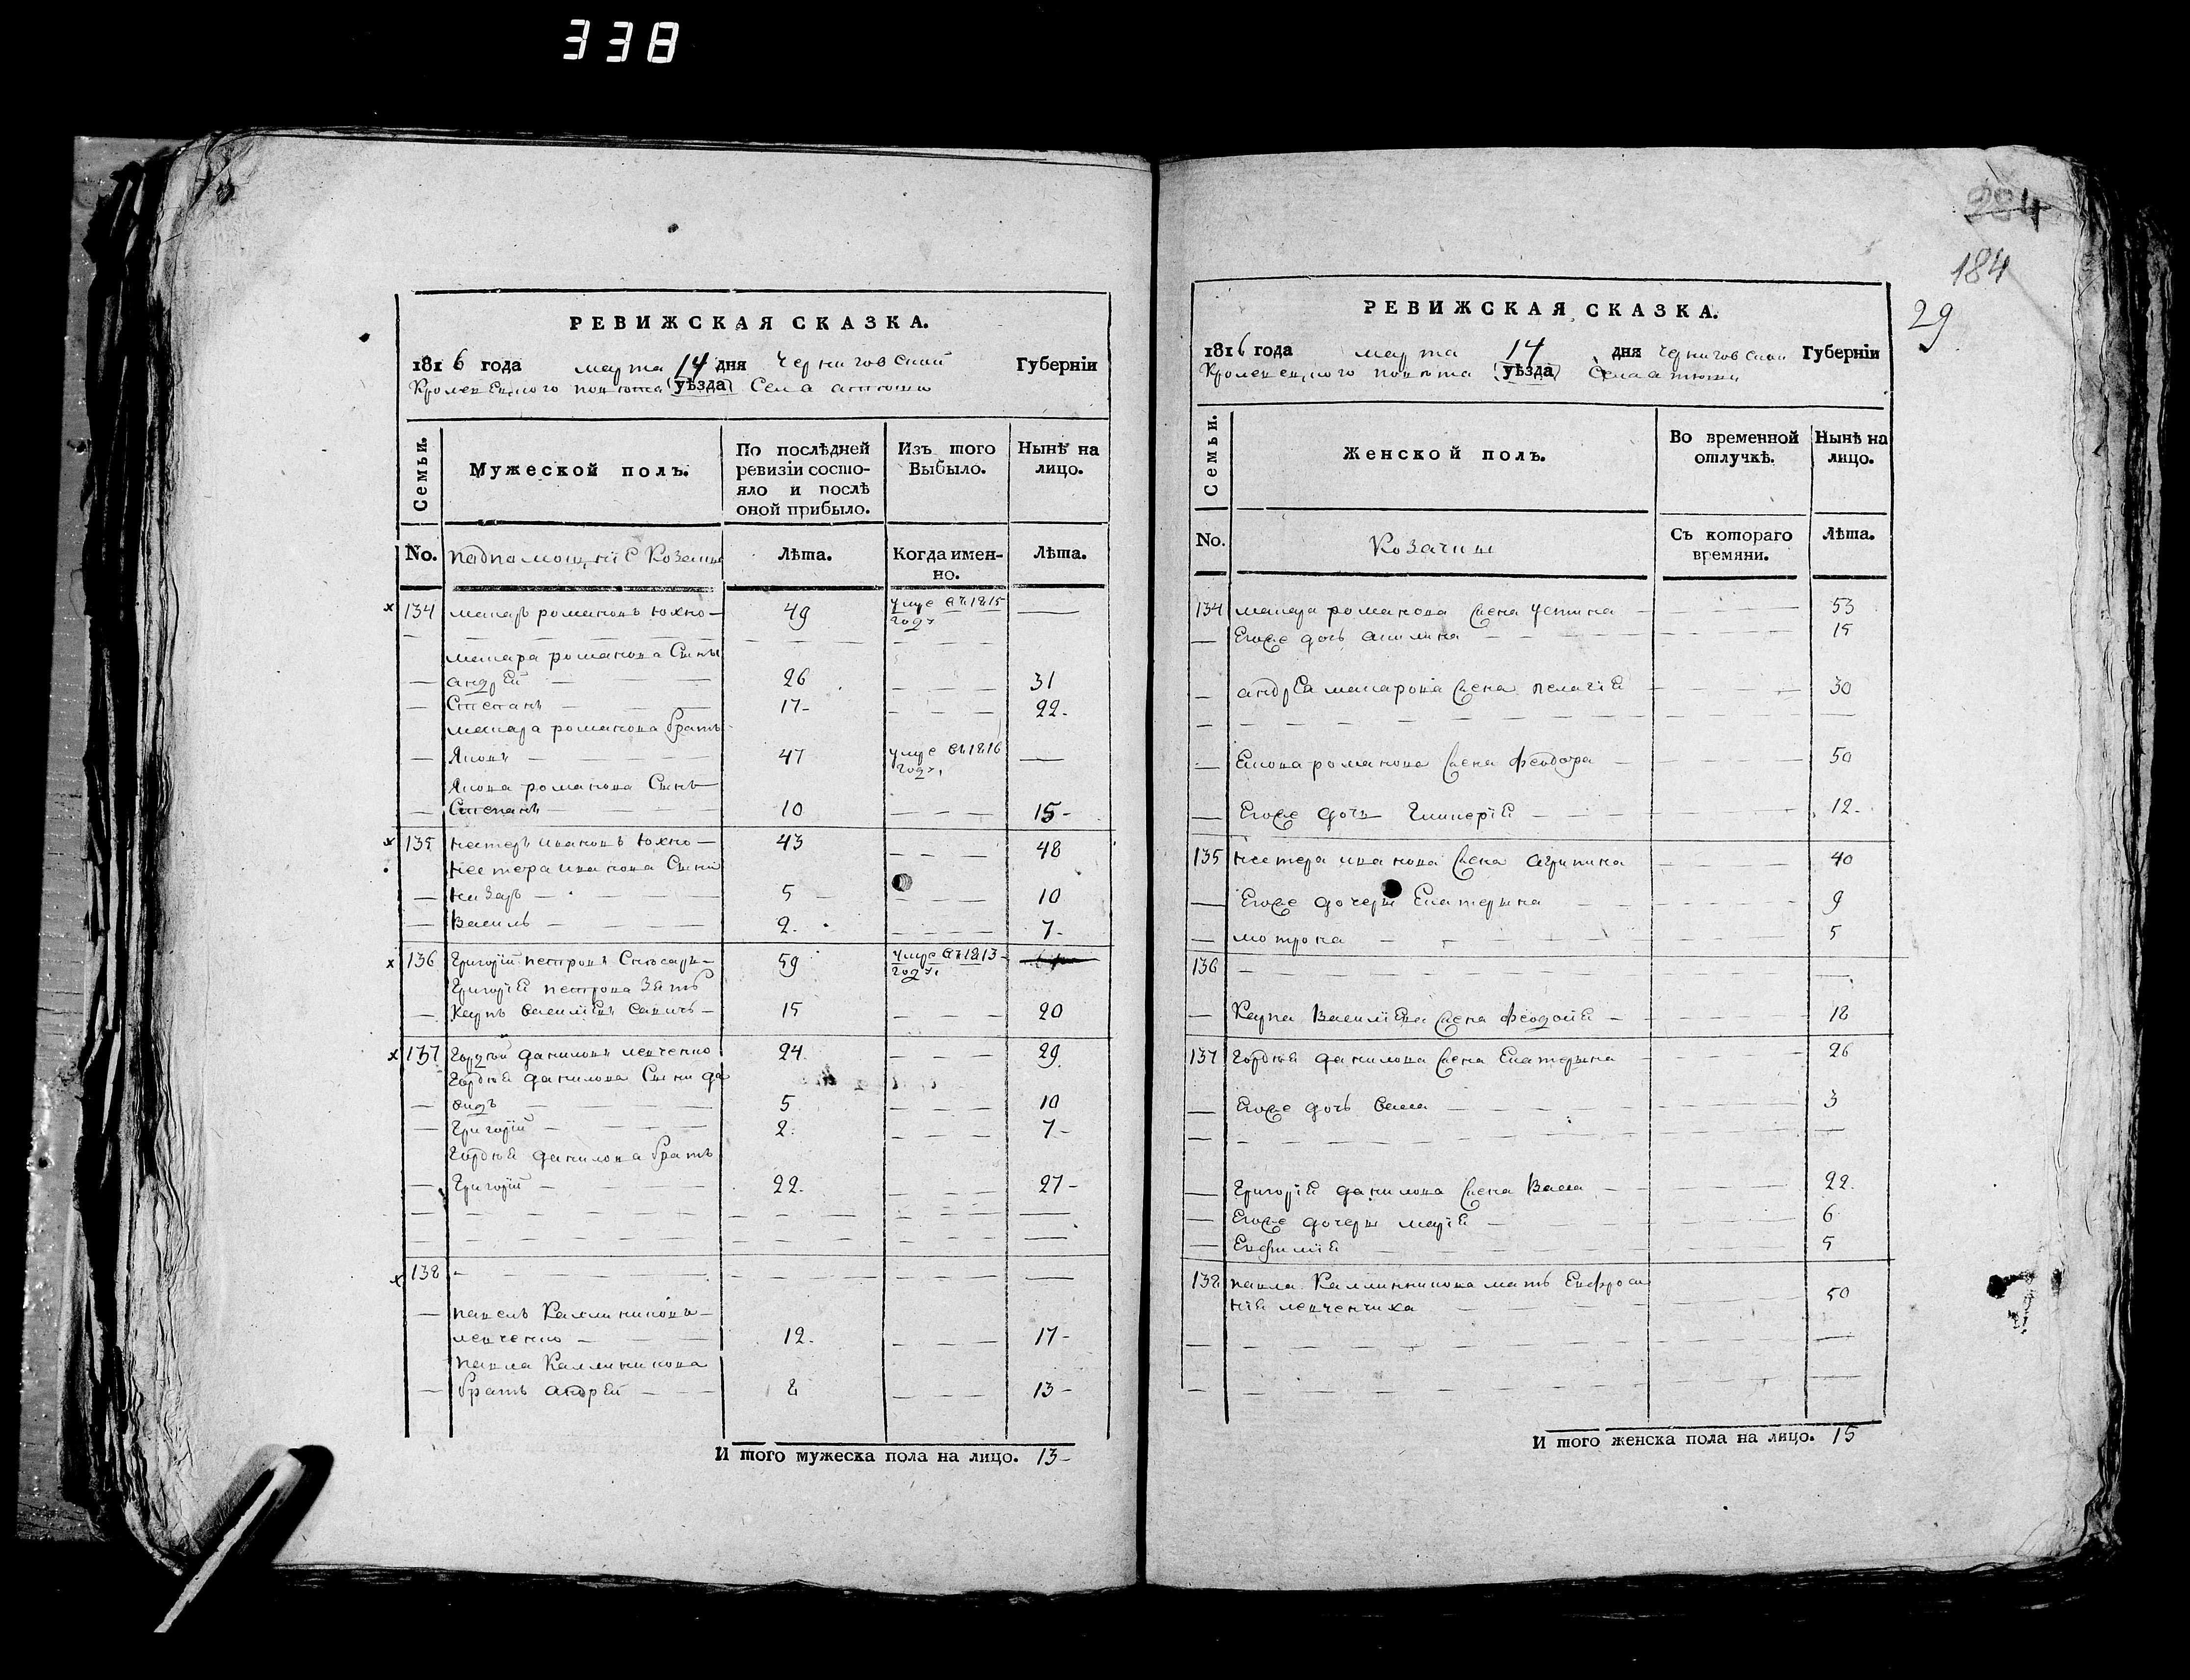 338
284
184
29
РЕВИЖСКАЯ СКАЗКА.
1816 года марта 14 дня Черниговской Губернїи
Кролевецкого повѣта (уѣзда) Села атюши
Семьи. Мужеской полъ. По послѣдней ревизїи состо-яло и послѣ оной прибыло. Изъ того Выбыло. Нынѣ на лицо.
No. подпомощнїе Козаки Лѣта. Когда имен-но. Лѣта.
134 макаръ романовъ юхно 49 умре въ 1815 году
макара романова Сыны
андрей 26 31
Степанъ 17 22
макара романова братъ
Яковъ 47 умре въ 1816 году
Якова романова Сынъ
Степанъ 10 15
135 нестеръ ивановъ юхно 43 48
нестера иванова Сыни
назаръ 5 10
Василь 2 7
136 Григорїй петровъ Слѣсарь 59 умре въ 1813 году
Григорїя петрова Зять
Карпъ василїевъ 15 20
137 Гордѣй даниловъ левченко 24 29
Гордѣя данилова Сыни да
видъ 5 10
Григорїй 2 7
Гордѣя данилова братъ
Григорїй 22 27
138
павелъ Каллиниковъ
левченко 12 17
павла Каллиникова
братъ андрей 8 13
И того мужеска пола на лицо. 13
РЕВИЖСКАЯ СКАЗКА.
1816 года марта 14 дня Черниговской Губернїи
Кролевецкого повѣта (уѣзда) Села атюши
Семьи. Женской полъ. Во временной отлучкѣ. Нынѣ на лицо.
No. Козачки Съ котораго времяни. Лѣта.
134 макара романова жена устина 53
Егоже дочь акилина 15
андрея макарова жена пелагїя 30
Якова романова жена феодора 50
Егоже дочь Гликерїя 12
135 нестера иванова жена агрипина 40
Егоже дочери Екатерина 9
мотрона 5
136
Карпа Василїева жена феодосїя 18
137 Гордѣя данилова жена Екатерина 26
Егоже дочь васса 3
Григорїя данилова жена Васса 22
Егоже дочери марїя 6
Евфимїя 5
138 павла Каллиникова мать Евфроси
нїя левченчиха 50
И того женска пола на лицо. 15